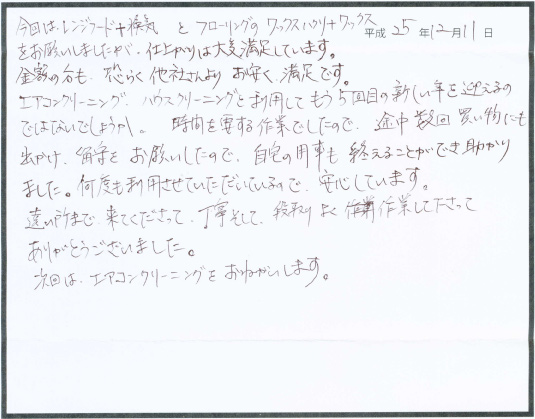 今回は、レンジフード+換気 と フローリングの ワックスハクリ+ワックス
平成 25 年 12 月 11 日
をお願いしましたが、仕上がりは大変満足しています。
金額の方も、恐らく他社さんより お安く、満足です。
エアコンクリーニング、ハウスクリーニングと利用してもう5回目の新しい年を迎えるの
ではないでしょうか。 時間を要する作業でしたので、途中 数回 買い物にも
出かけ、留守を お願いしたので、自宅の用事も 終えることができ 助かり
ました。何度も利用させていただいているので、安心しています。
遠い所まで 来てくださって、丁寧そして、段取り よく 作業してくださって
ありがとうございました。
次回は、エアコンクリーニングを おねがいします。